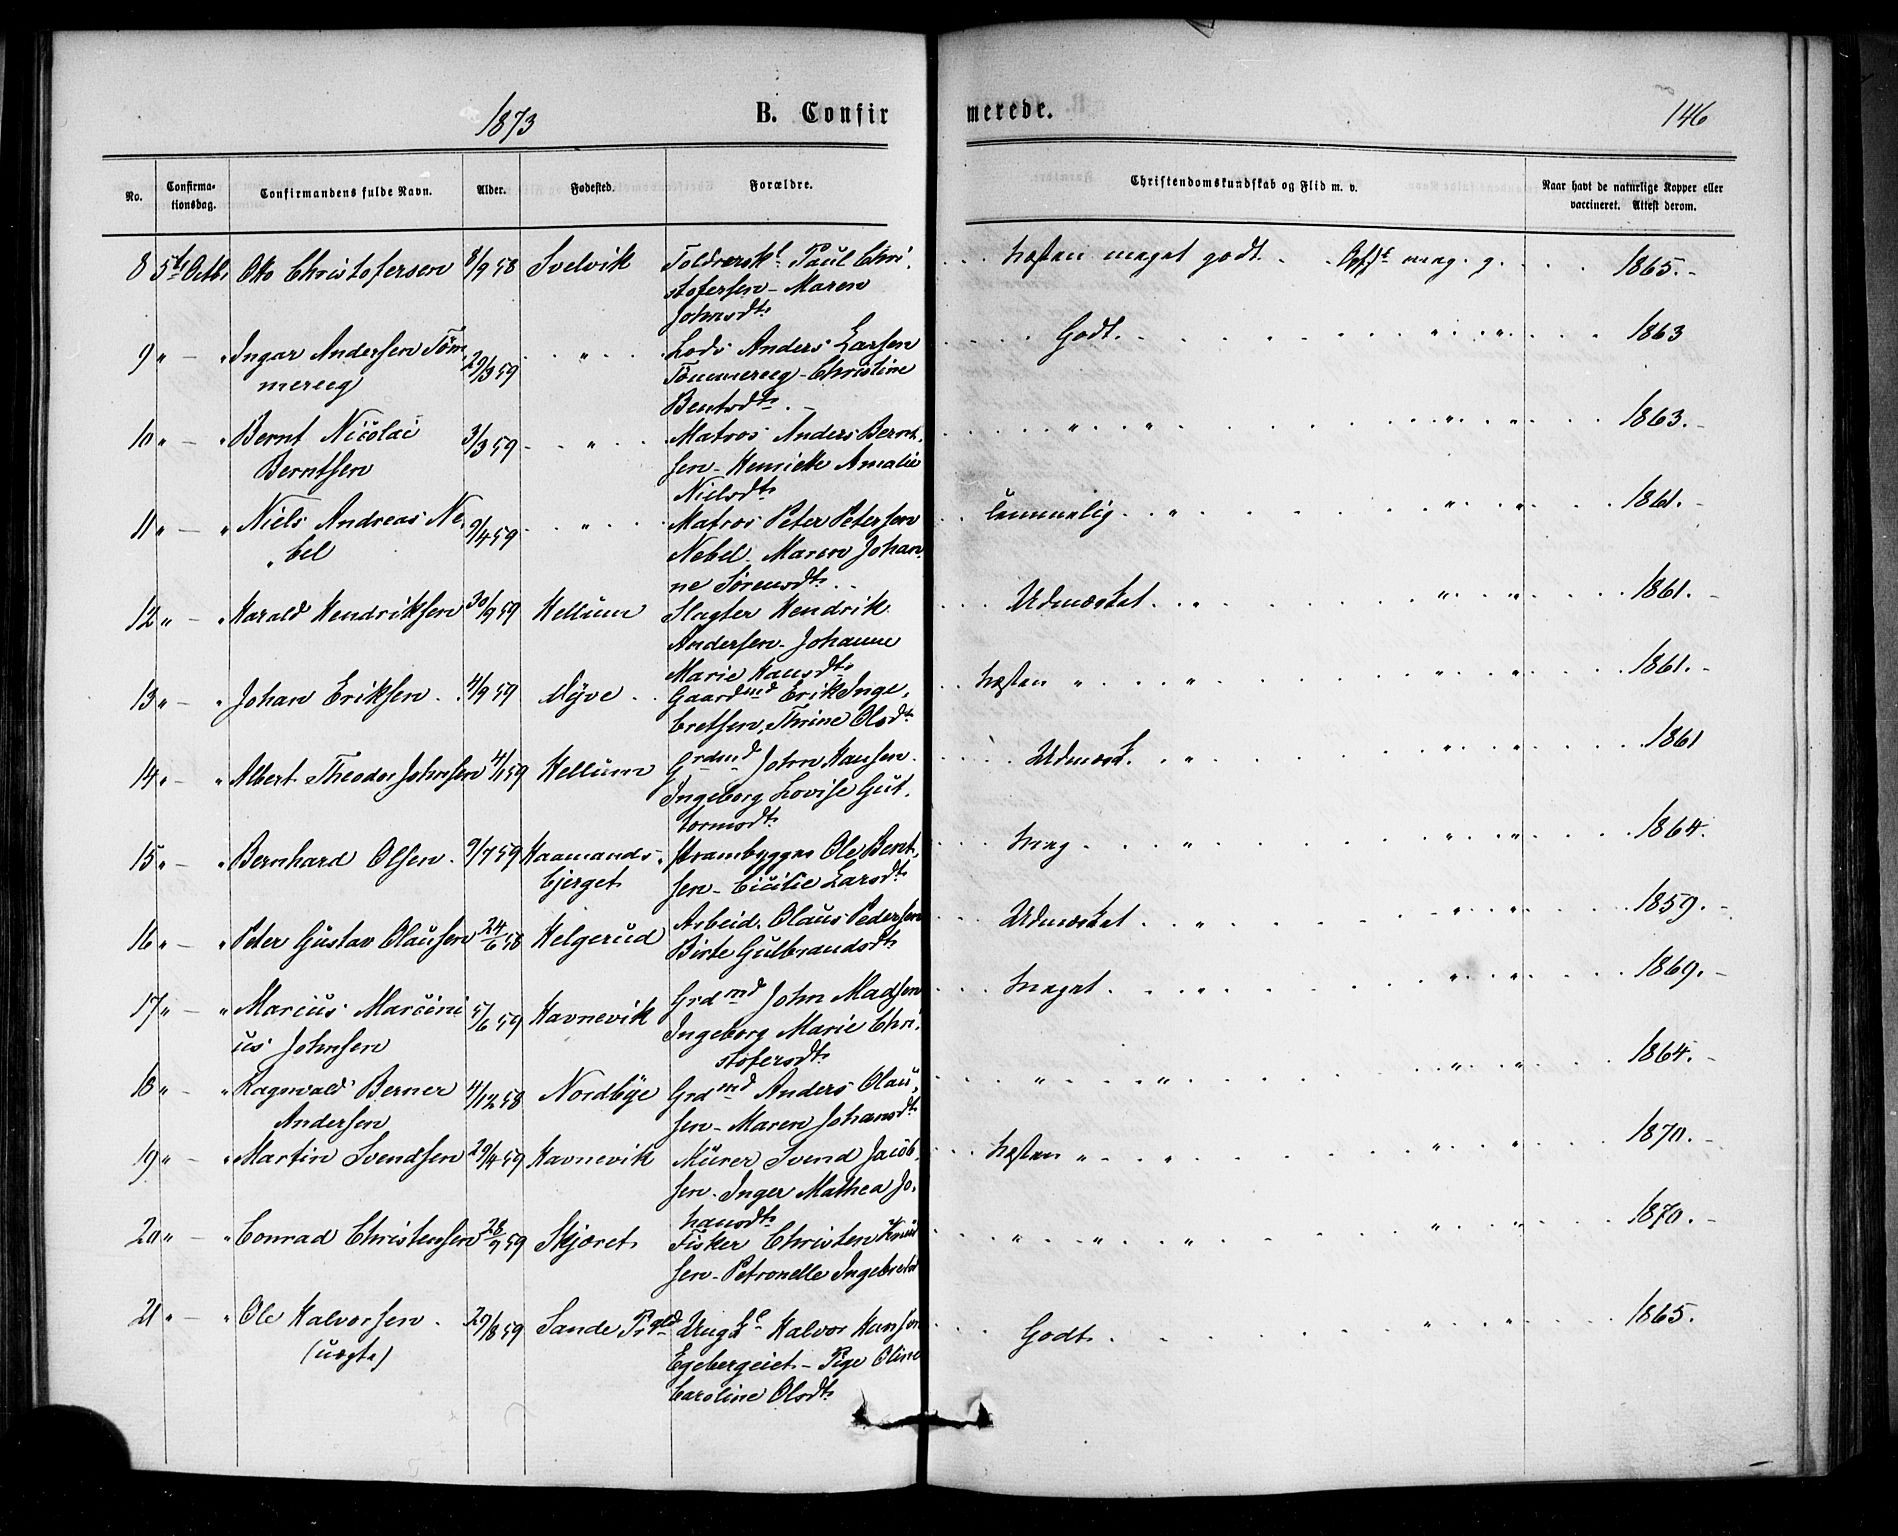 1873
B. Confirmerede.
146
No.
Confirmationsdag.
Confirmandens fulde Navn.
Alder.
Fødested.
Forældre.
Christendomskundskab og Flid m. v.
Naar havt de naturlige Kopper eller vaccineret. Attest derom.
8 5te Octb. Otto Christofersen 8/9 58 Svelvik Toldrorsk. Paul Chri-
stofersen - Maren
Johnsdt.
Næsten meget godt. meg. g. 1865.-
9 " - " Ingar Andersen Töm- 29/3 59 " Lods Anders Larsen
mereeg Tömmereeg - Christine
Bentsdt. -
Godt. " " 1863
10 " - " Bernt Nicolai 3/3 59 - " Matros Anders Bernt-
Berntsen sen - Henriette Amalie
Nielsdt.
" " " " 1863.-
11 " - " Niels Andreas Ne- 9/4 59 - " Matros Peter Petersen
bel Nebel - Maren Johan-
ne Sörensdt.
Temmelig " " " 1861.-
12 " - " Harald Hendriksen 30/9 59 Hellum Slagter Hendrik
Andersen - Johanne
Marie Hansdt.
Udmærket " " " 1861.-
13 " - " Johan Eriksen 4/9 59 Myve Gaardmd Erik Inge-
bretsen, Thrine Olsdt.
Næsten " " " " 1861.-
14 " - " Albert Theodor Johnsen 4/1 59 Hellum Grdmd John Hansen
Ingeborg Lovise Gut-
tormsdt.
Udmærk. " " " 1861
15 " - " Bernhard Olsen 9/7 59 Kaamands- Prambygger Ole Bent-
bjerget sen - Cicilie Larsdt.
Meg " " 1864.
16 " - " Peter Gustav Olausen 24/6 58 Helgerud Arbeid. Olaus Pedersen
Birte Gulbrandsdt.
Udmærket " " " 1859.-
17 " - " Marius Marcini 5/6 59 Havnevik Grdmd John Madsen
us Johnsen Ingeborg Marie Chri-
stofersdt.
Meget " " " 1869.-
18 " - " Ragnvald Berner 4/12 58 Nordbye Grdmd Anders Olau-
Andersen sen - Maren Johansdt.
" " " " 1864.-
19 " - " Martin Svendsen 29/4 59 Havnevik Murer Svend Jacob-
sen - Inger Mathea Jo-
hansdt.
Næsten " " " " 1870.-
20 " - " Conrad Christensen 28/9 59 Skjæret Fisker Christen Knud
sen - Petronelle Ingebretsd
" " " " " 1870.-
21 " - " Ole Halvorsen 29/8 59 Sande Prgld. Ungk. Halvor Hansen
(uægte) Egebergeiet - Pige Oline
Caroline Olsdt.
Godt " " 1865.